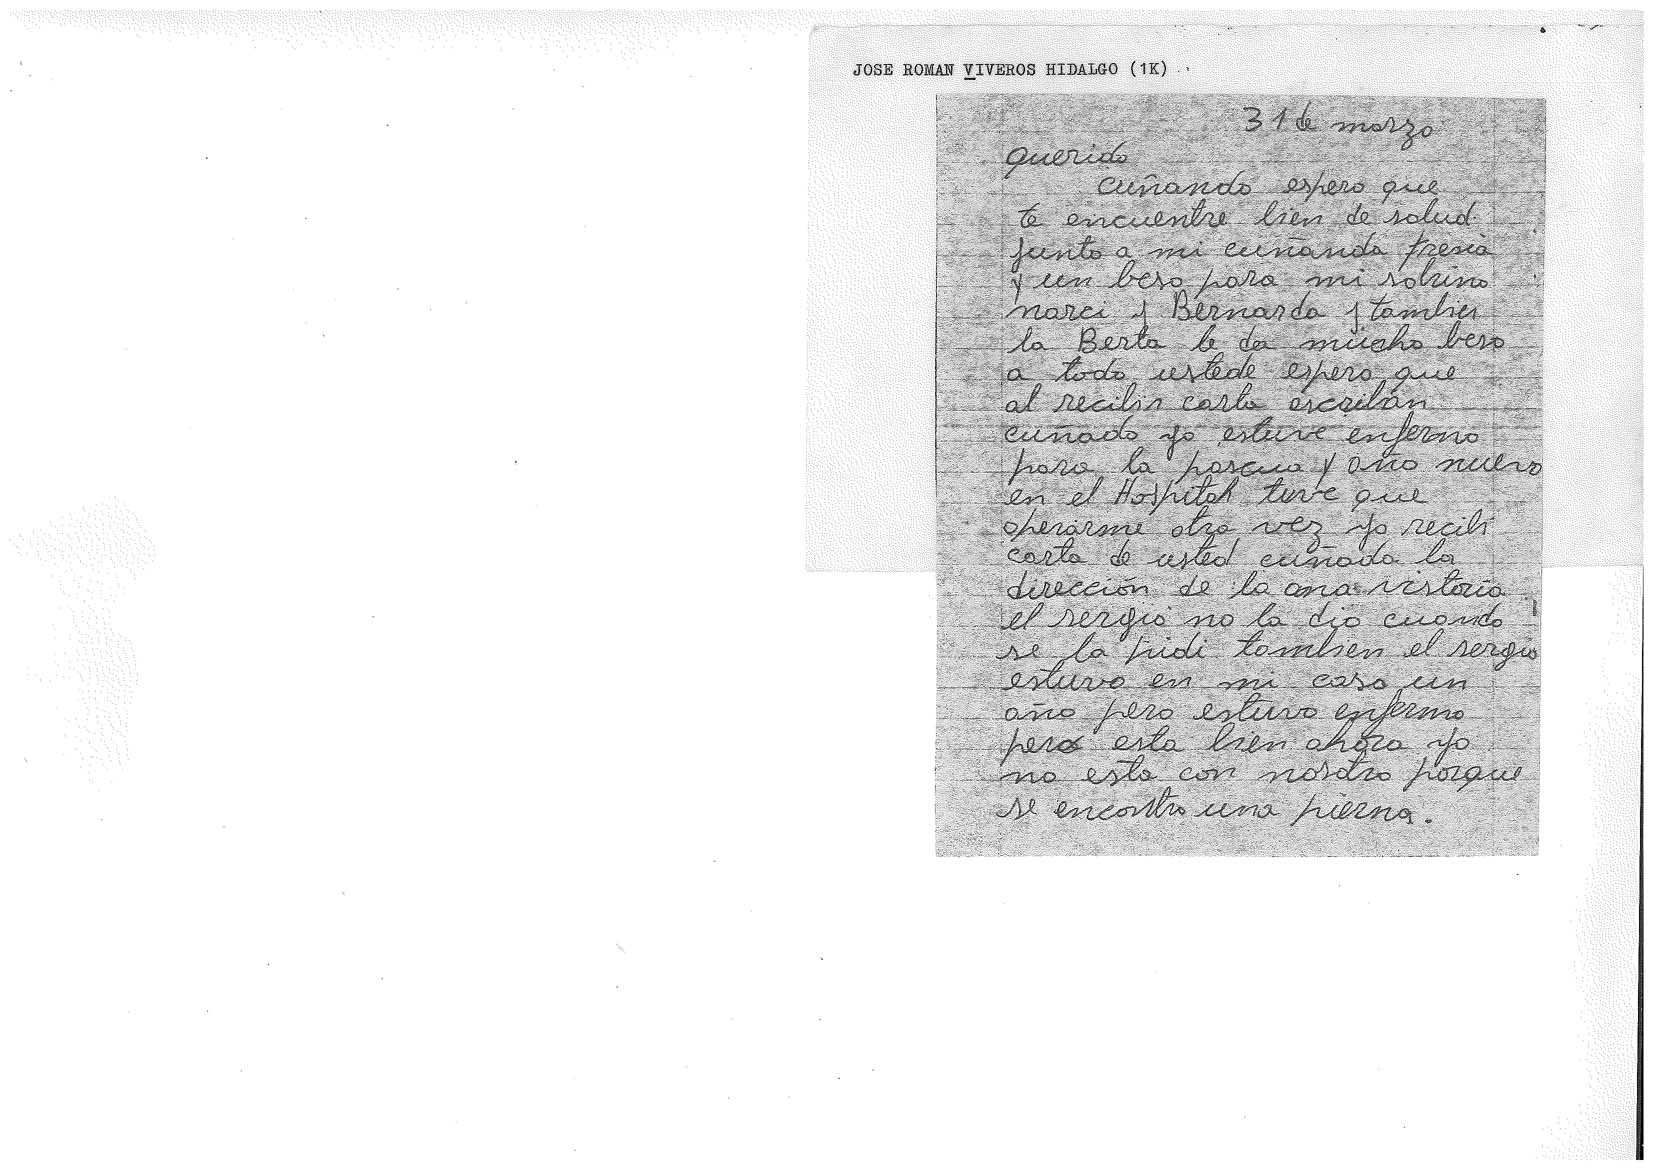 JOSE ROMAN VIVEROS HIDALGO (1K)
31 de marzo
Querido
cuñando espero que
te encuentre bien de salud
junto a mi cuñanda presia
y un beso para mi sobrino
narci y Bernarda y tambien
la Berta le da mucho beso
a todo ustede espero que
al recibir carta escriban
cuñado yo estuve enfermo
para la pascua y año nuevo
en el Hospital tuve que
operarme otra vez yo recibi
carta de usted cuñada la
dirección de la ana victoria
el sergio no la dio cuando
se la pidi tambien el sergio
estuvo en mi casa un
año pero estuvo enfermo
pero esta bien ahora yo
no esta con nosotro porque
se encontro una pierna.